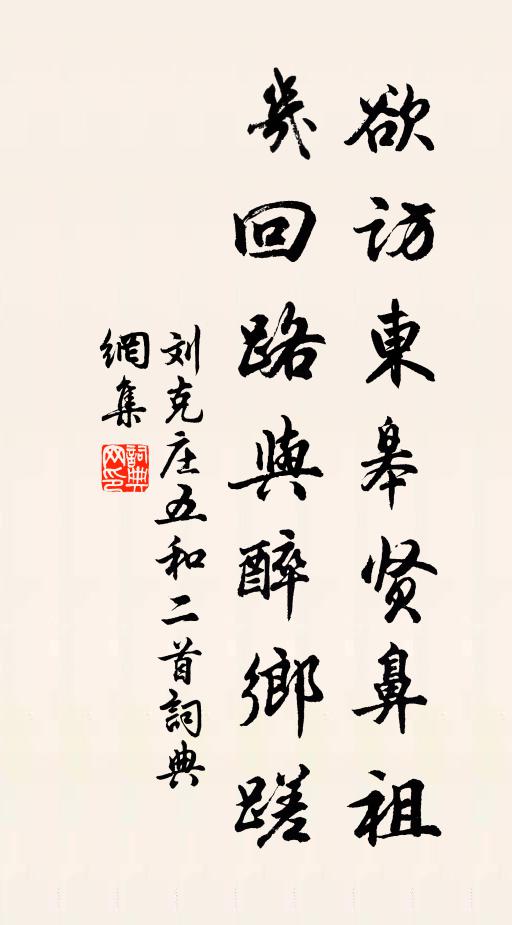 欲访東皋贤鼻祖
几回路與醉鄉蹉
刘克庄五和二首詞典
網集
詞典網印